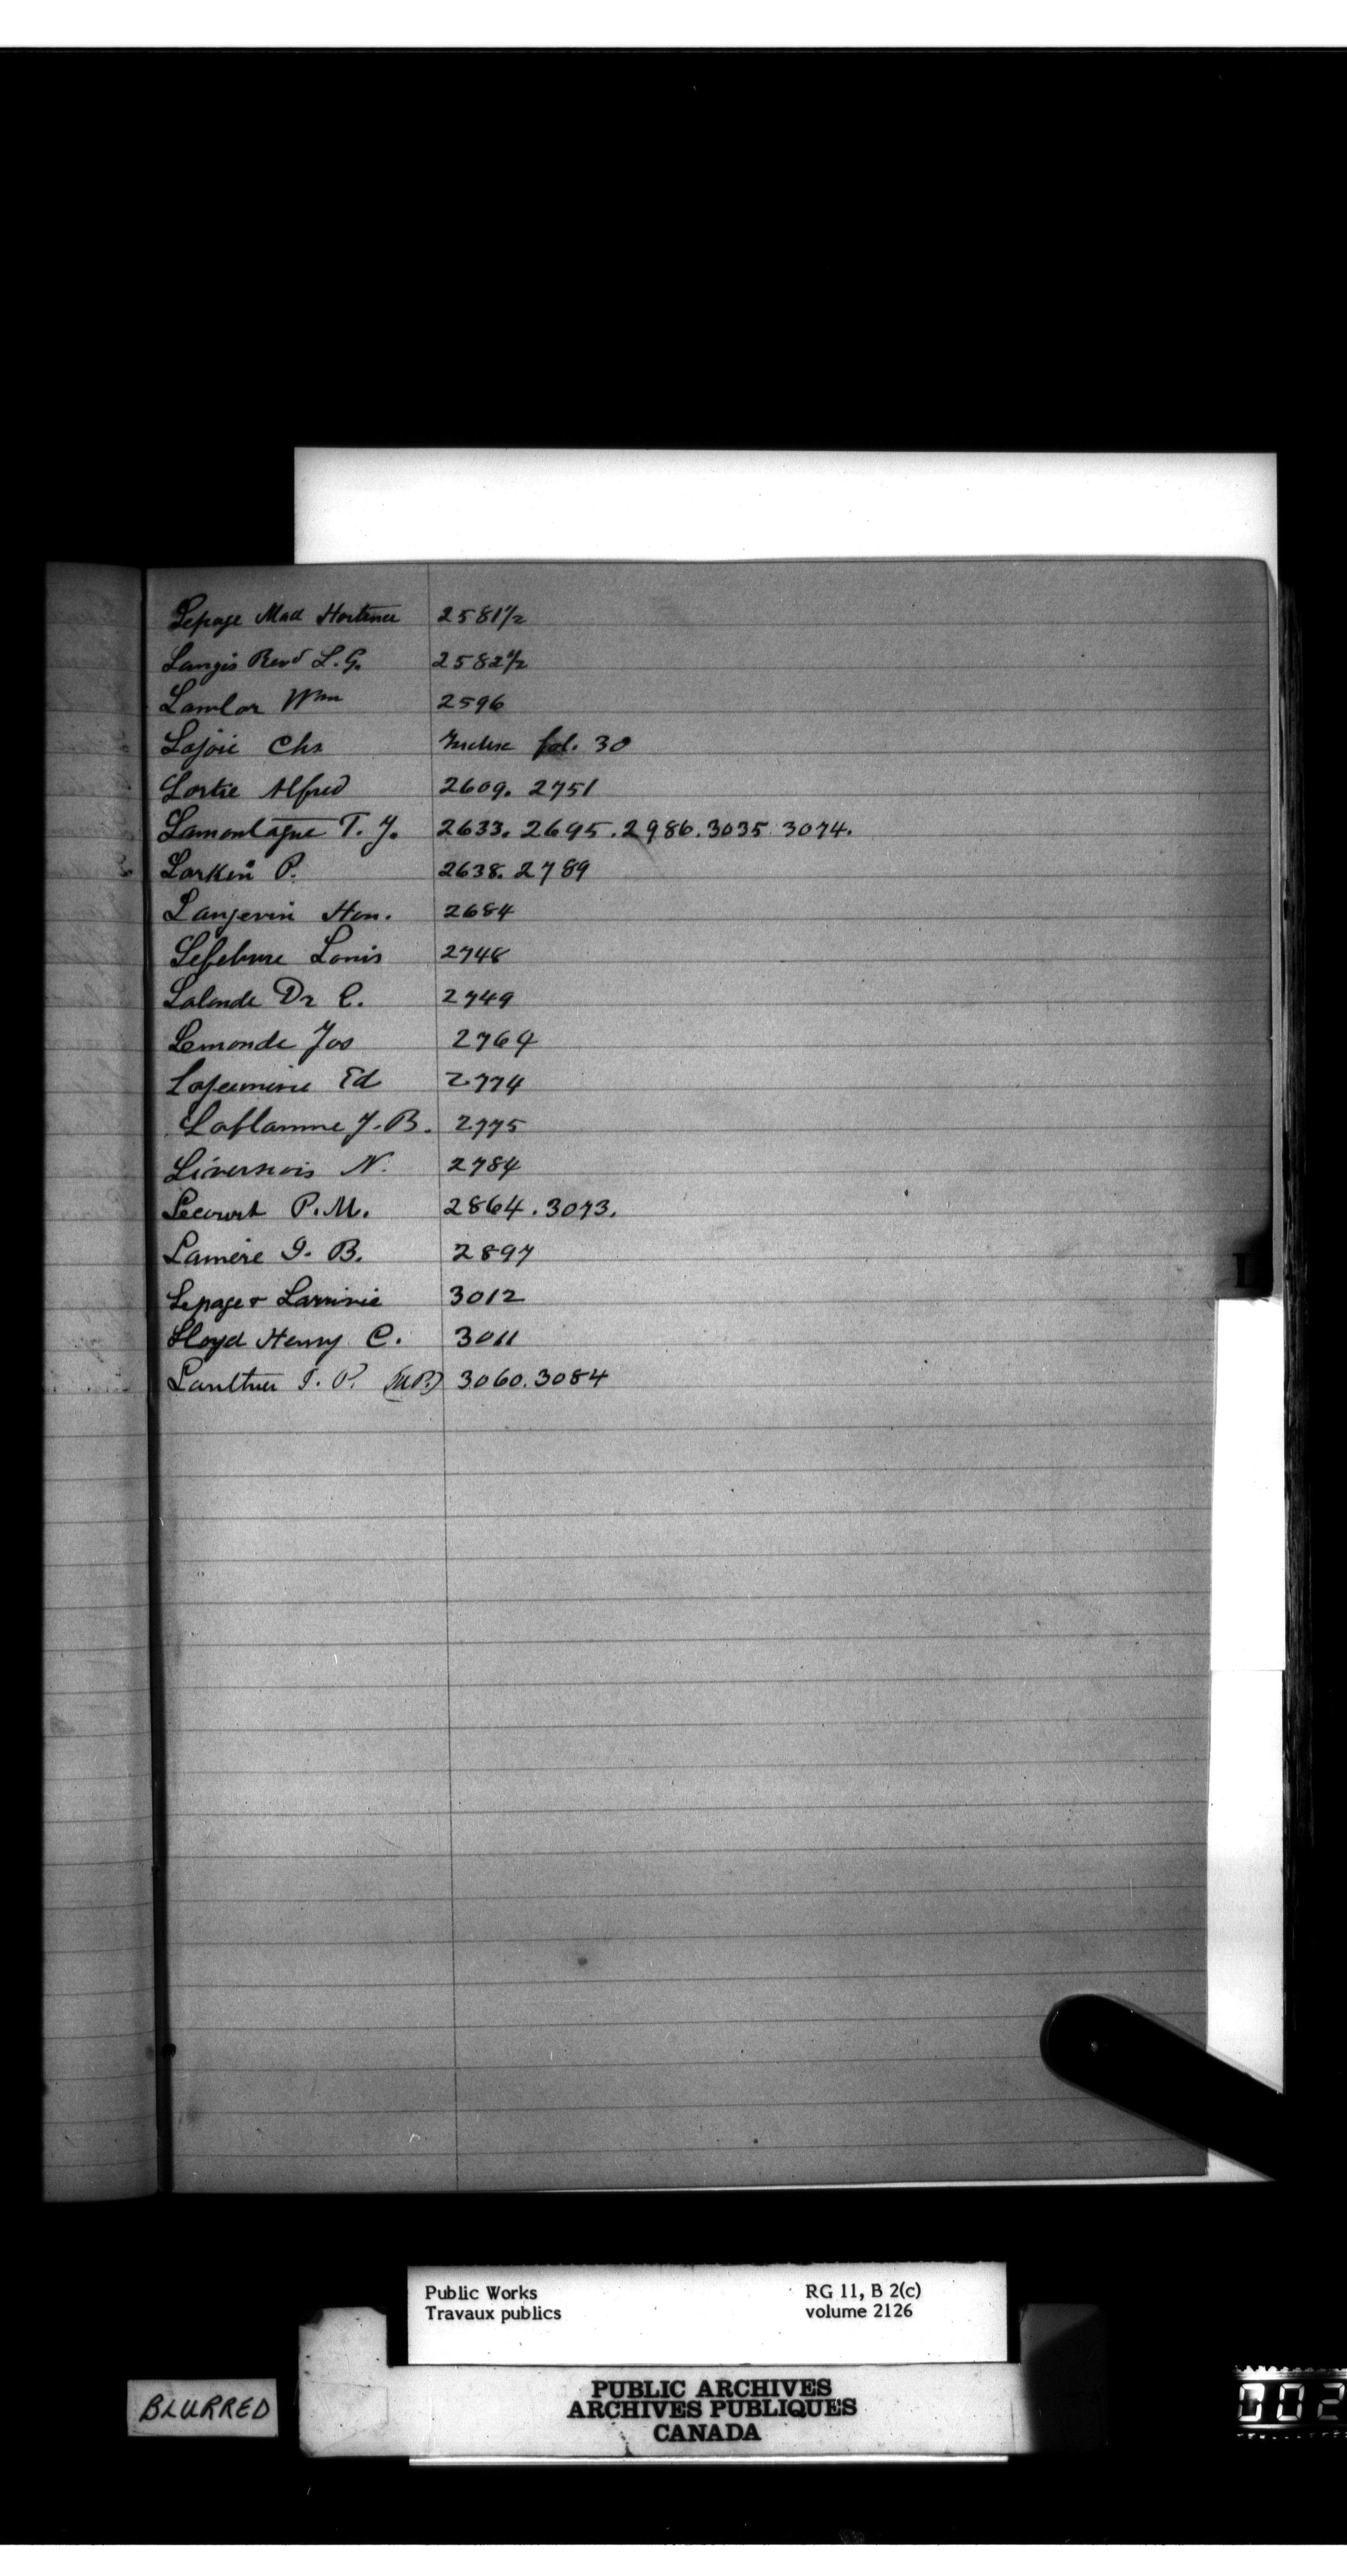 Lepage Mad Hortense 2581½
Langis Revd L. G. 2582½
Lawlor Wm 2596
Lajoie Chs fol. 30
Lortie Alfred 2609. 2751
Lamontagne T. J. 2633. 2695. 2986. 3035. 3074.
Larkin P. 2638. 2789
Langevin Hon. 2684
Lefebvre Louis 2748
Lalonde Dr C. 2749
Lemonde Jos 2764
Lajeunesse Ed 2774
Laflamme J. B. 2775
Livernois N. 2784
Lecourt P. M. 2864. 3073.
Lamere J. B. 2897
Lepage & Larivie 3012
Lloyd Henry C. 3011
(M.P.) 3060. 3084
L
Public Works RG 11, B 2(c)
Travaux publics volume 2126
PUBLIC ARCHIVES
ARCHIVES PUBLIQUES
CANADA
BLURRED
002